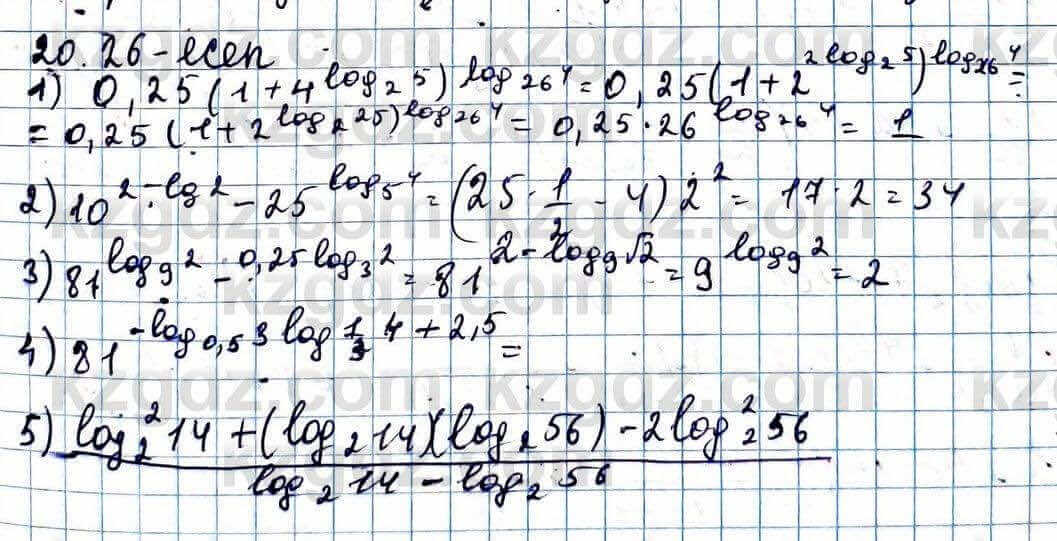 20.26-есеп
1) 0,25(1+4^{log_2 5})^{log_{26} 4} = 0,25(1+2^{2log_2 5})^{log_{26} 4} =
= 0,25(1+2^{log_2 25})^{log_{26} 4} = 0,25·26^{log_{26} 4} = 1
2) 10^{2-lg2} - 25^{log_5 4} = (25·1/2 - 4)2^2 = 17·2 = 34
3) 81^{log_9 2 - 0,25log_3 2} = 81^{2-log_9 √2} = 9^{log_9 2} = 2
4) 81^{-log_{0,5} 3 log_{1/3} 4 + 2,5} =
5) log_2^2 14 + (log_2 14)(log_2 56) - 2log_2^2 56
log_2 14 - log_2 56
kzgdz.com